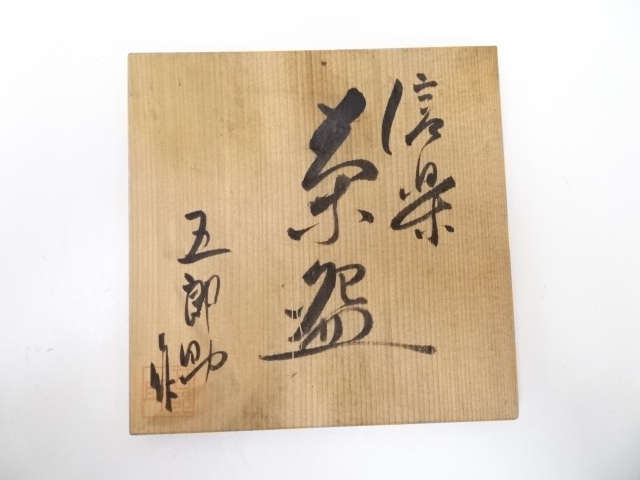 信楽
茶盌
五郎助
作